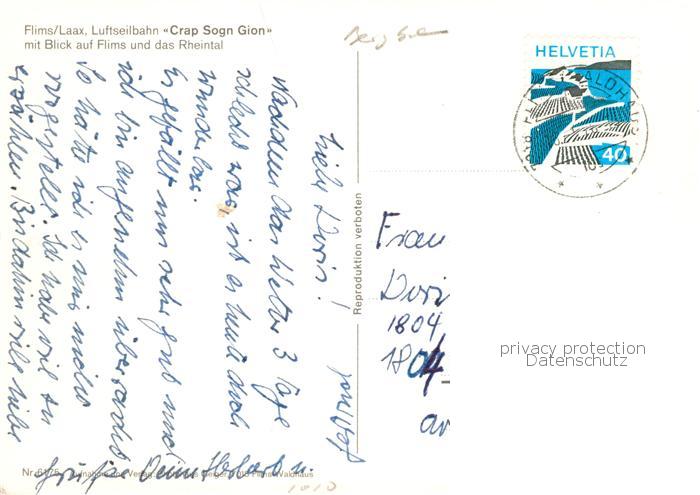 Flims/Laax, Luftseilbahn «Crap Sogn Gion»
mit Blick auf Flims und das Rheintal
HELVETIA
40
Liebe Doris!
Nachdem das Wetter 3 Tage
schlecht war, ist es heute doch
wunderbar.
Es gefällt uns sehr gut und
ich bin angenehm überrascht
so hätte ich es mir nicht
vorgestellt. Ich habe viel zu
erzählen. Bis dahin viele liebe
Grüße Deine
Reproduktion verboten
Frau
1804
1804
privacy protection
Datenschutz
Nr. 6175
Waldhaus
1010